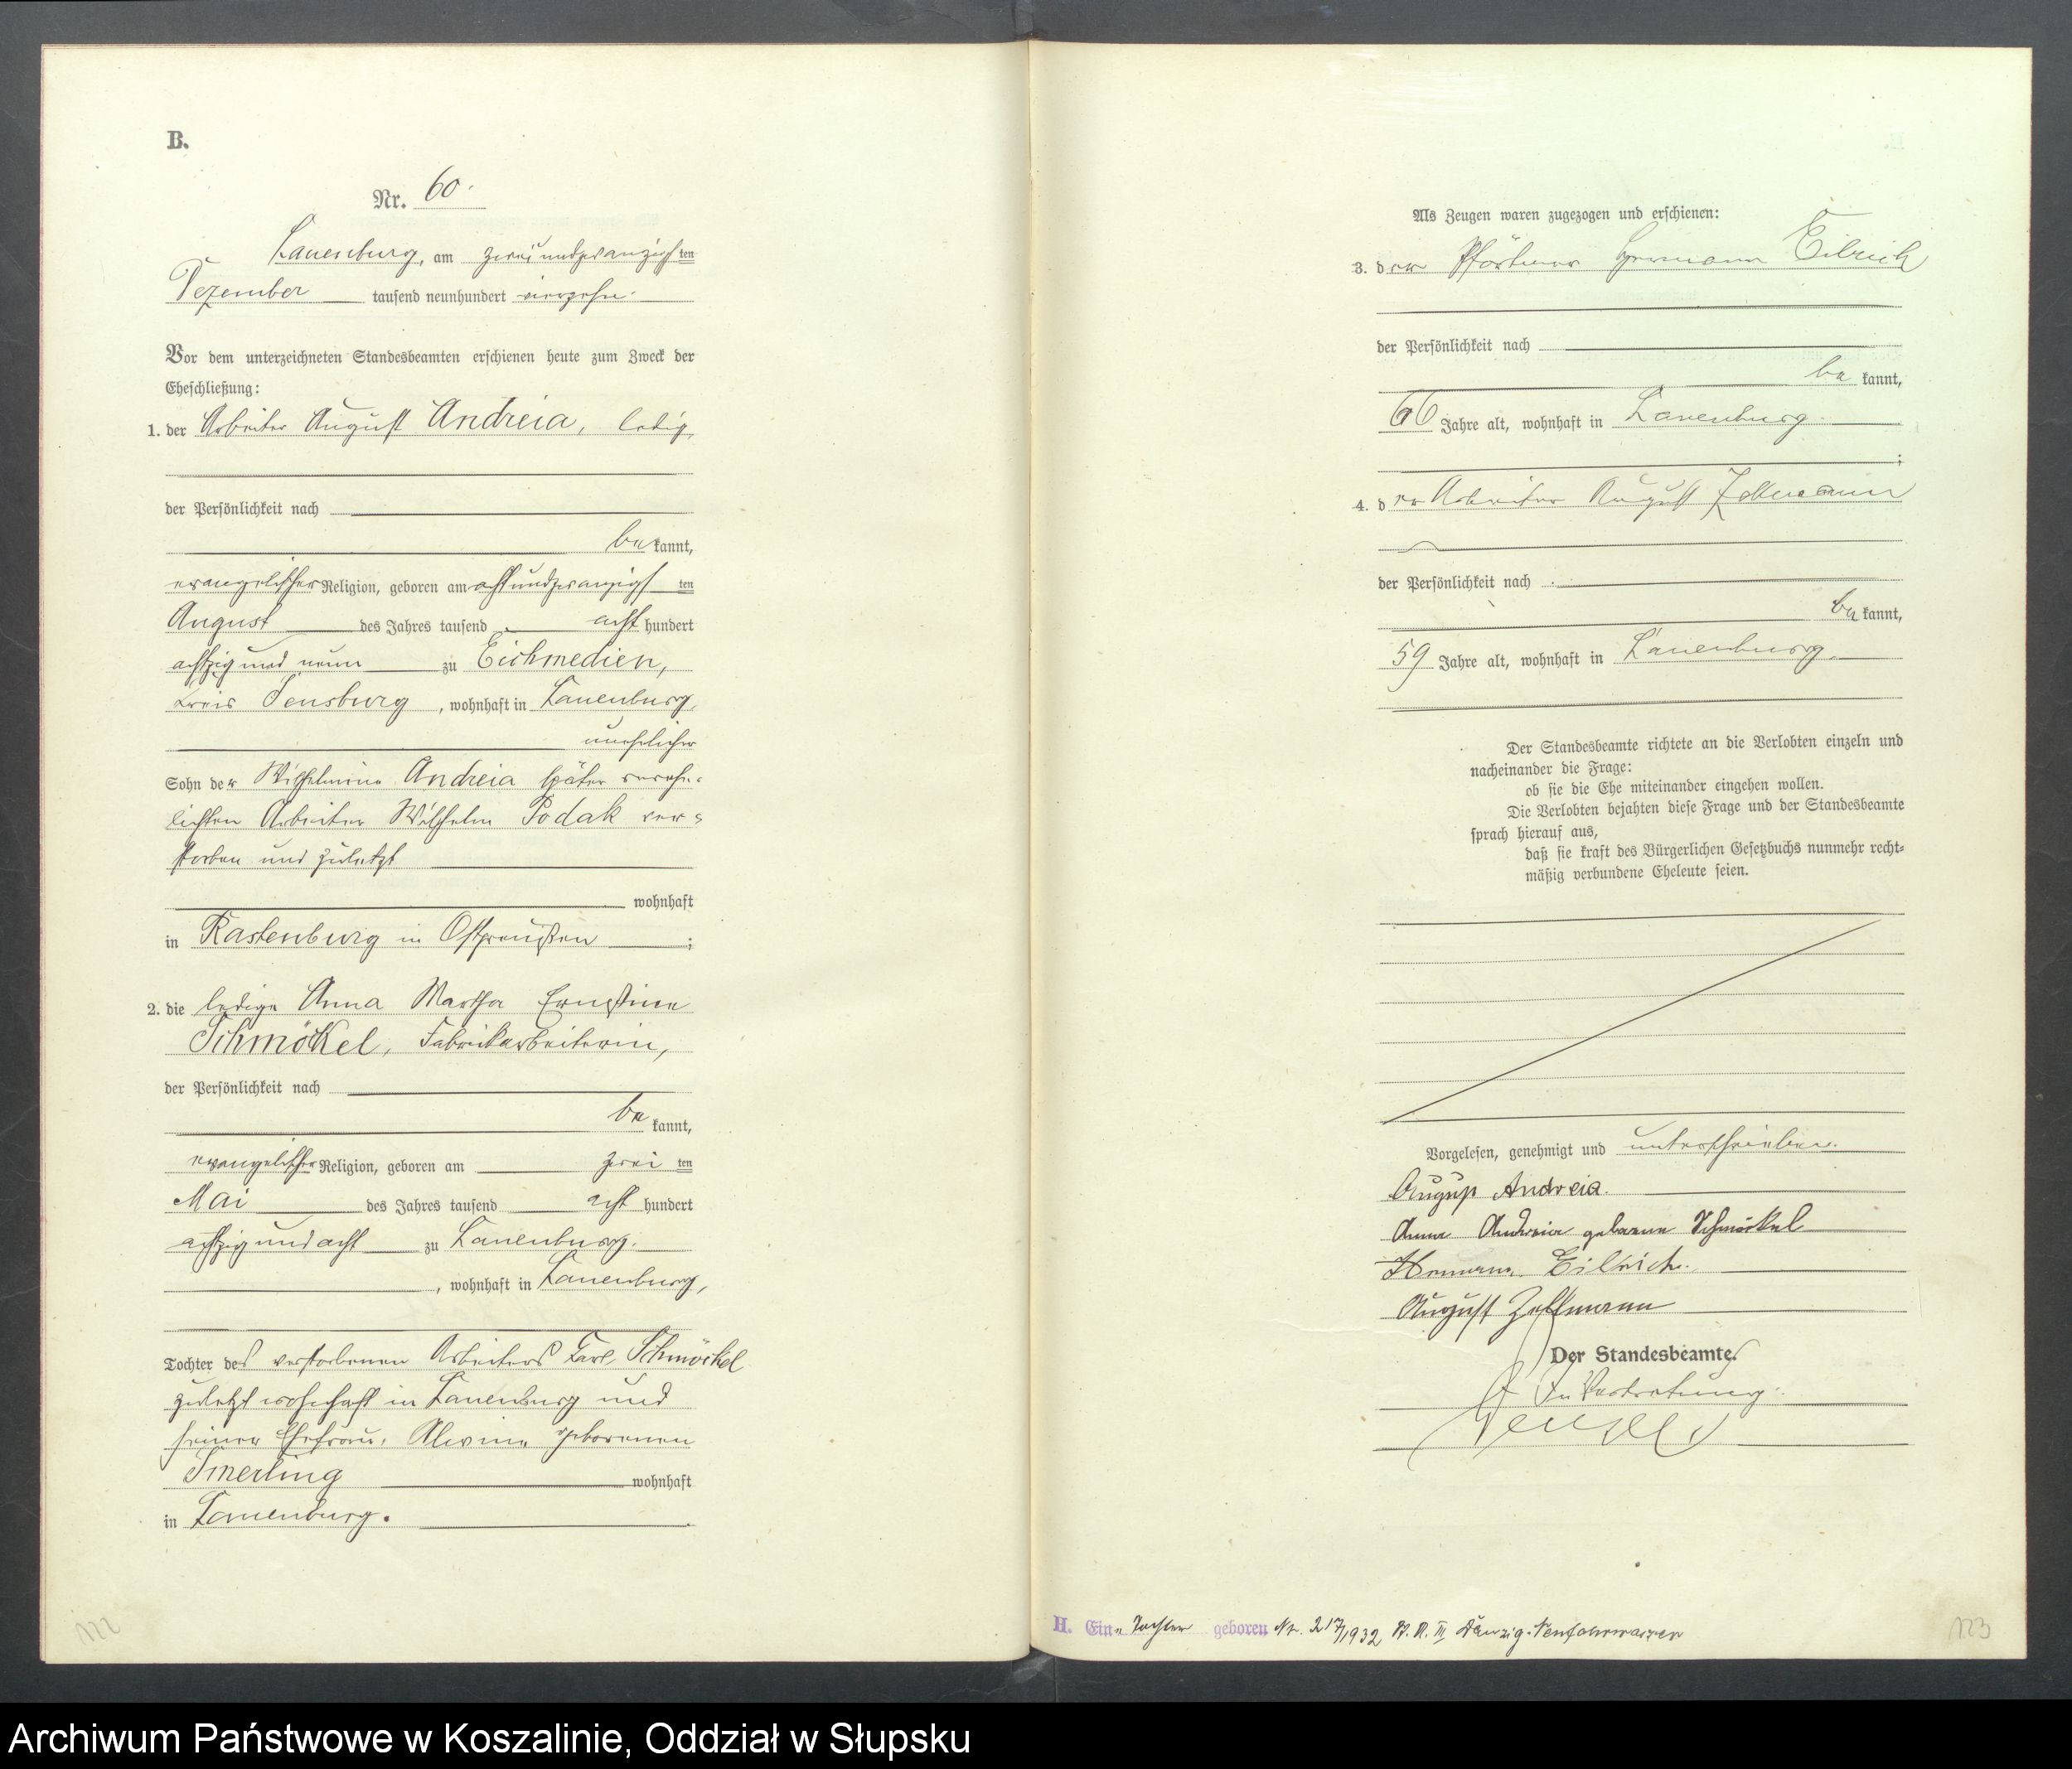 B.
Nr. 60.
Lauenburg, am zweiundzwanzigsten
Dezember tausend neunhundert vierzehn.
Vor dem unterzeichneten Standesbeamten erschienen heute zum Zweck der
Eheschließung:
1. der Arbeiter August Andreia, ledig,
der Persönlichkeit nach
bekannt,
evangelischer Religion, geboren am achtundzwanzigsten
August des Jahres tausend acht hundert
achtzig und neun zu Eichmedien,
Kreis Sensburg, wohnhaft in Lauenburg,
unehelicher
Sohn der Wilhelmine Andreia später verehe-
lichten Arbeiter Wilhelm Podak ver-
storben und zuletzt
wohnhaft
in Rastenburg in Ostpreußen;
2. die ledige Anna Martha Ernestine
Schmökel, Fabrikarbeiterin,
der Persönlichkeit nach
bekannt,
evangelischer Religion, geboren am zweiten
Mai des Jahres tausend acht hundert
achtzig und acht zu Lauenburg.
, wohnhaft in Lauenburg,
Tochter des verstorbenen Arbeiters Carl Schmöckel
zuletzt wohnhaft in Lauenburg und
seiner Ehefrau, Alwine geborenen
Smerling wohnhaft
in Lauenburg.
122
Als Zeugen waren zugezogen und erschienen:
3. der Pförtner Hermann Eilrich
der Persönlichkeit nach
bekannt,
66 Jahre alt, wohnhaft in Lauenburg.
;
4. der Arbeiter August
der Persönlichkeit nach
bekannt,
59 Jahre alt, wohnhaft in Lauenburg.
Der Standesbeamte richtete an die Verlobten einzeln und
nacheinander die Frage:
ob sie die Ehe miteinander eingehen wollen.
Die Verlobten bejahten diese Frage und der Standesbeamte
sprach hierauf aus,
daß sie kraft des Bürgerlichen Gesetzbuchs nunmehr recht-
mäßig verbundene Eheleute seien.
Vorgelesen, genehmigt und unterschrieben.
August Andreia.
Anna Andreia geborene Schmökel
Hermann Eilrich.
August
Der Standesbeamte.
In Vertretung.
H. Eine Tochter geboren Nr. 217/1932 St. A. III Danzig-Neufahrwasser
123
Archiwum Państwowe w Koszalinie, Oddział w Słupsku